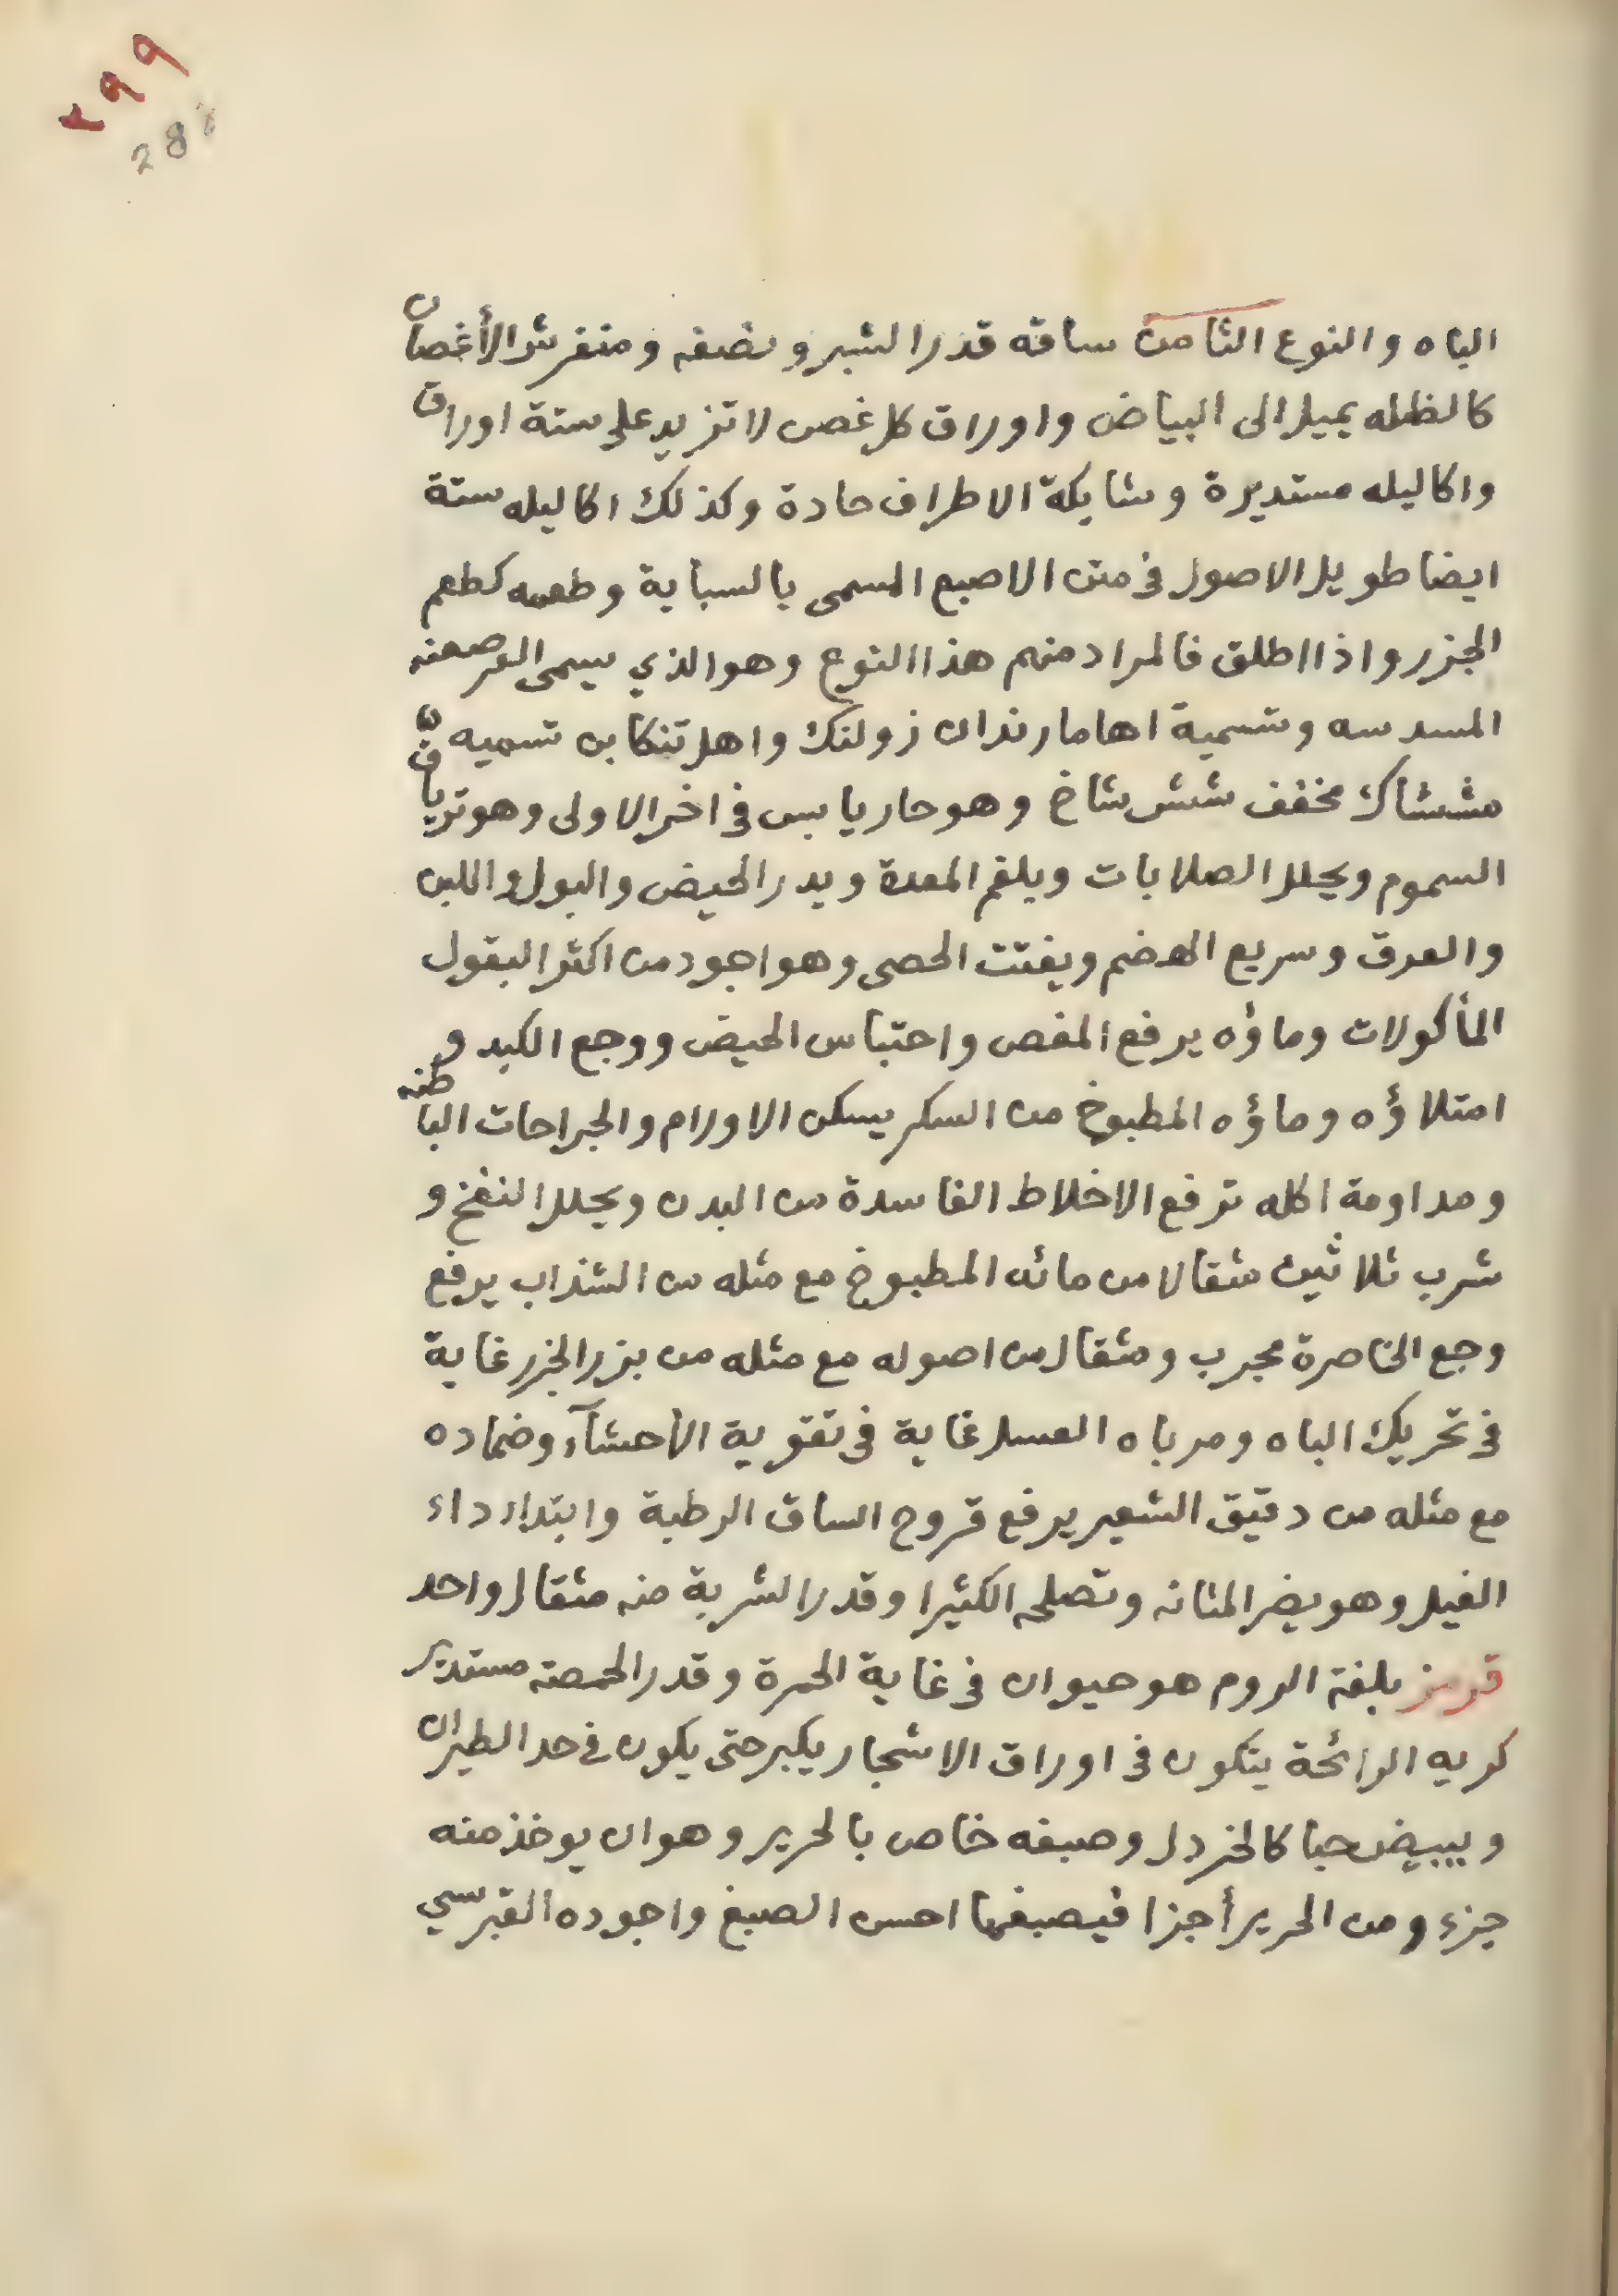 ٢٩٩
288
الباه والنوع الثامن ساقه قدر الشبر ونصفه ومتفرش الأغصان
كالظله يميل الى البياض واوراق كل غصن لا تزيد على ستة اوراق
واكاليله مستديرة وشايكة الاطراف حادة وكذلك اكاليله ستة
ايضا طويل الاصول فى متن الاصبع المسمى بالسبابة وطعمه كطعم
الجزر واذا اطلق فالمراد منهم هذا النوع وهو الذي يسمى القرصعنه
المسدسه وتسمية اهل مارندان زولنك واهل تنكابن تسميه
ششاك مخفف شش شاخ وهو حار يابس فى اخر الاولى وهو ترياق
السموم ويحلل الصلابات وبلغم المعدة ويدر الحيض والبول واللبن
والعرق وسريع الهضم ويفتت الحصى وهو اجود من اكثر البقول
المأكولات وماؤه يرفع المغص واحتباس الحيض ووجع الكبد و
امتلاؤه وماؤه المطبوخ من السكر يسكن الاورام والجراحات الباطنه
ومداومة اكله ترفع الاخلاط الفاسدة من البدن ويحلل النفخ و
شرب ثلاثين مثقالا من مائه المطبوخ مع مثله من الشذاب يرفع
وجع الخاصرة مجرب ومثقال من اصوله مع مثله من بزر الجزر غاية
فى تحريك الباه ومرباه العسل غاية فى تقوية الأحشآء وضماده
مع مثله من دقيق الشعير يرفع قروح الساق الرطبة وابتداء داء
الفيل وهو يضر المثانه وتصلحه الكثيرا وقدر الشربة منه مثقال واحد
قرمز بلغة الروم هو حيوان فى غاية الحمرة وقدر الحمصة مستدير
كريه الرائحة يتكون فى اوراق الاشجار يكبر حتى يكون فى حد الطيران
ويبيض حبا كالخردل وصبغه خاص بالحرير وهو ان يوخذ منه
جزء ومن الحرير أجزا فيصبغها احسن الصبغ واجوده القبرسي